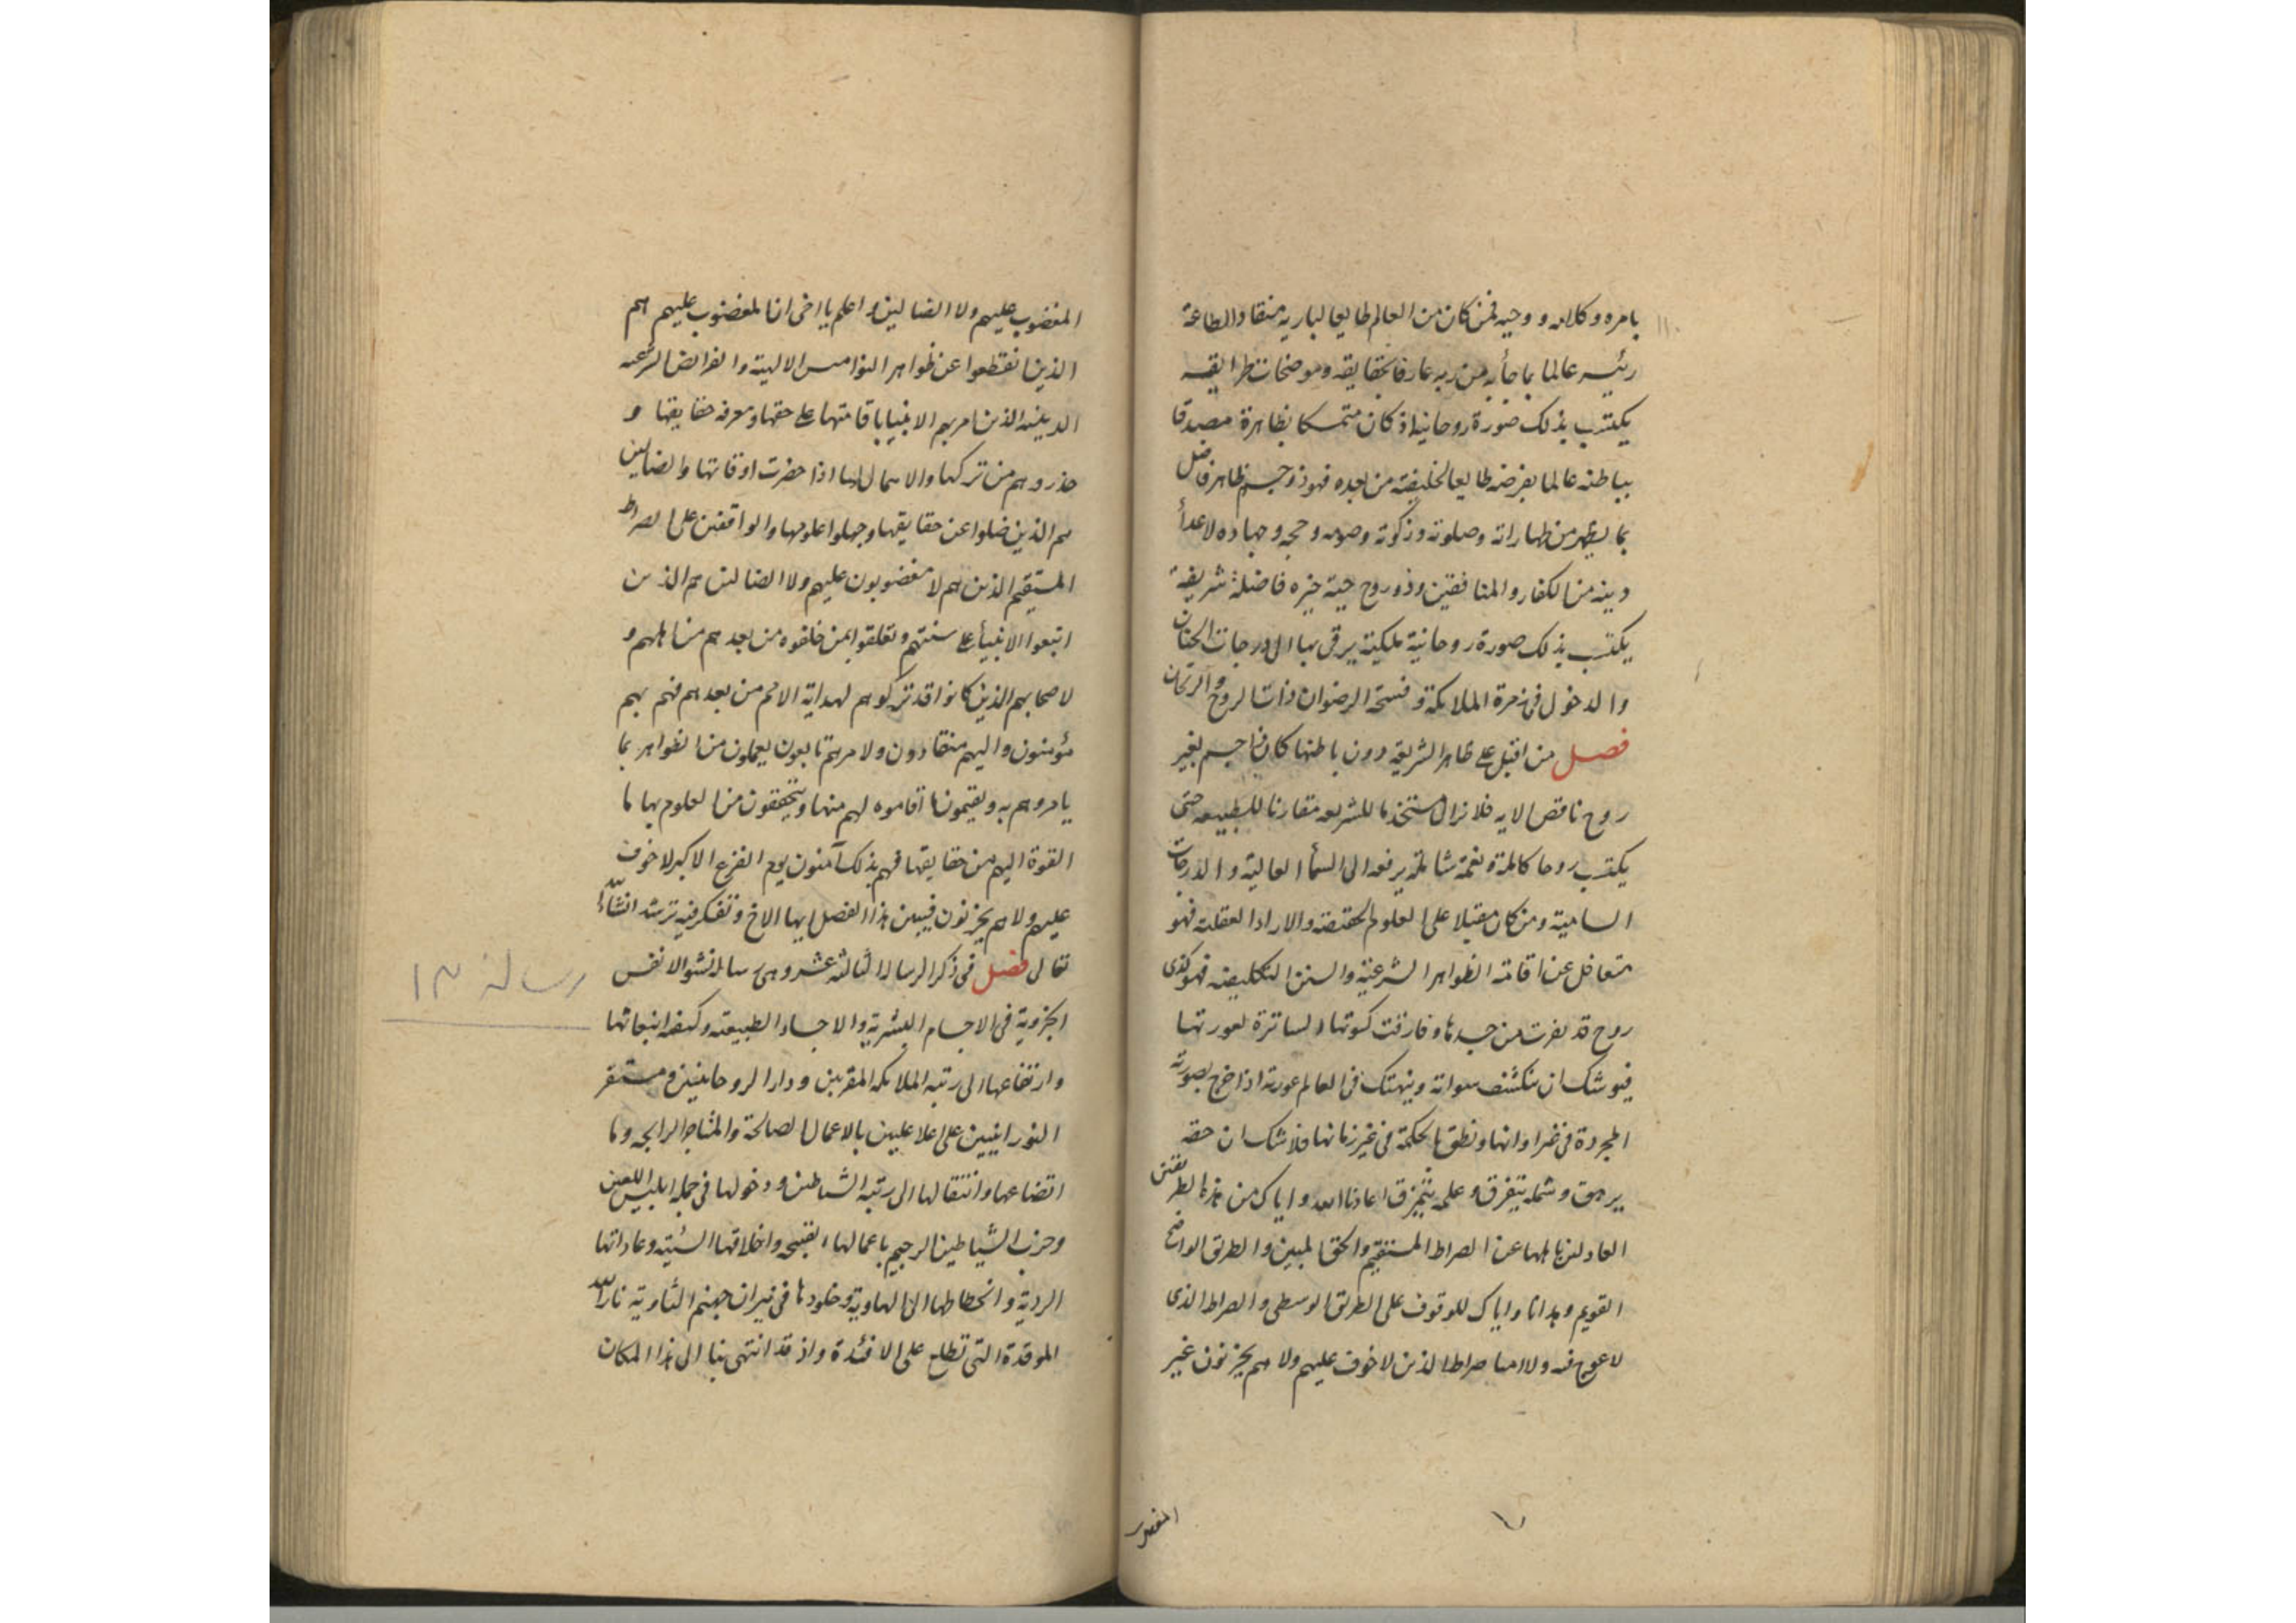 بامره وكلامه ووحيه فمن كان من العالم طايعا لباريه منقادا لطاعة
رئيسه عالما بما جأ به من ربه عارفا بحقايقه وموضحات طرايقه
يكتسب بذلك صورة روحانية اذ كان متمسكا بظاهرة مصدقا
بباطنه عالما بفرضه طايعا لخليفته من بعده فهو ذو جسم ظاهر فاضل
بما يظهر من طهاراته وصلوته وزكوته وصومه وحجه وجهاده لاعدأ
دينه من الكفار والمنافقين وذو روح حية خيره فاضلة شريفة
يكتسب بذلك صورة روحانية ملكية يرقى بها الى درجات الجنان
والدخول فى زمرة الملايكة وفسحة الرضوان ذات الروح والريحان
فصل من اقبل على ظاهر الشريعة دون باطنها كان ذا جسم بغير
روح ناقص الايه فلا نزال مستخدما للشريعه مقارنا للطبيعه حتى
يكتسب روحا كاملة ونعمة شاملة يرفعه الى السمأ العالية والدرجات
السامية ومن كان مقبلا على العلوم الحقيقة والارادا العقلية فهو
متغافل عن اقامة الظواهر الشرعية والسنن التكليفيه فهو كذى
روح قد نفرت من جسدها وفارقت كسوتها الساترة لعورتها
فيوشك ان تنكشف سواته وينهتك فى العالم عورته اذا خرج بصورته
المجردة فى غير اوانها ونطق بالحكمة فى غير زمانها فلا شك ان حقه
يرهق وشمله يتفرق وعلمه يتمزق اعاذنا الله واياك من هذه الطريقتين
العادلين باهلها عن الصراط المستقيم والحق المبين والطريق الواضح
القويم وهدانا واياك للوقوف على الطريق الوسطى والصراط الذى
لا عوج فيه ولا امتا صراط الذين لا خوف عليهم ولا هم يحزنون غير
المغضوب
المغضوب عليهم ولا الضالين واعلم يا اخى ان المغضوب عليهم هم
الذين انقطعوا عن ظواهر النواميس الالهية والفرائض الشرعيه
الدينيه الذين امرهم الانبيا باقامتها على حقها ومعرفه حقايقها و
حذروهم من تركها والاهمال لها اذا حضرت اوقاتها والضالين
هم الذين ضلوا عن حقايقها وجهلوا علومها والواقفين على الصراط
المستقيم الذين هم لا مغضوبون عليهم ولا الضالين هم الذين
اتبعوا الانبيأ على سنتهم وتعلقوا بمن خلفوه من بعدهم من اهلهم و
لاصحابهم الذين كانوا قد تركوهم لهداية الامم من بعدهم فهم بهم
مؤمنون واليهم منقادون ولامرهم تابعون يعملون من الظواهر بما
يامروهم به ويقيمون ما اقاموه لهم منها ويتحققون من العلوم بها ما
القوة اليهم من حقايقها فهم بذلك آمنون يوم الفزع الاكبر لا خوف
عليهم ولا هم يحزنون فتبين هذا الفصل ايها الاخ وتفكر فيه ترشد انشاء الله
تعالى فصل فى ذكر الرسالة الثالثة عشر وهى رسالة نشو الانفس
الجزوية فى الاجسام البشرية والاجساد الطبيعته وكيفه انبعاثها
وارتفاعها الى رتبه الملايكه المقربين ودار الروحانيين ومستقر
النورانيين على اعلا عليين بالاعمال الصالحة والمتاجر الرابحه وما
اتضاعها وانتقالها الى رتبه الشياطين ودخولها فى جملة ابليس اللعين
وحزب الشياطين الرجيم باعمالها القبيحه واخلاقها السئية وعاداتها
الردية وانحطاطها الى الهاوية وخلودها فى نيران جهنم الثاوية نار الله
الموقدة التى تطلع على الافئدة واذ قد انتهى بنا الى هذا المكان
رسالة ١٣